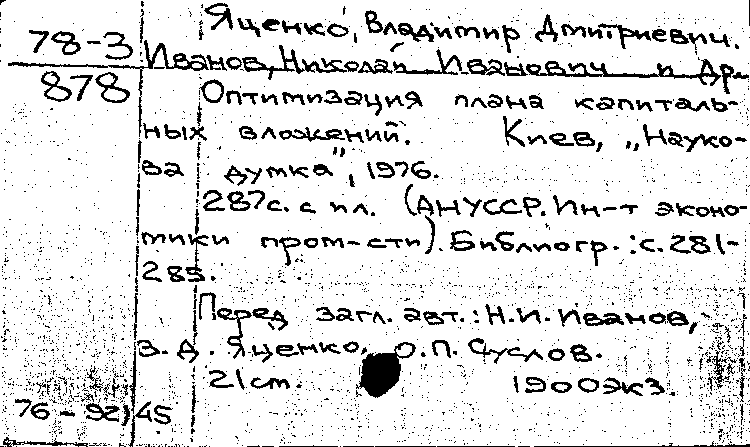 Яценко, Владимир Дмитриевич.
78-3 Иванов, Николай Иванович и др.
878 Оптимизация плана капиталь-
ных вложений. Киев, „Науко-
ва думка", 1976.
287с. с ил. (АНУССР. Ин-т эконо-
мики пром-сти). Библиогр.: с. 281-
285.
Перед загл. авт.: Н.И. Иванов,
В. Д. Яценко, О.П. Суслов.
21см. 1900экз.
76-92145